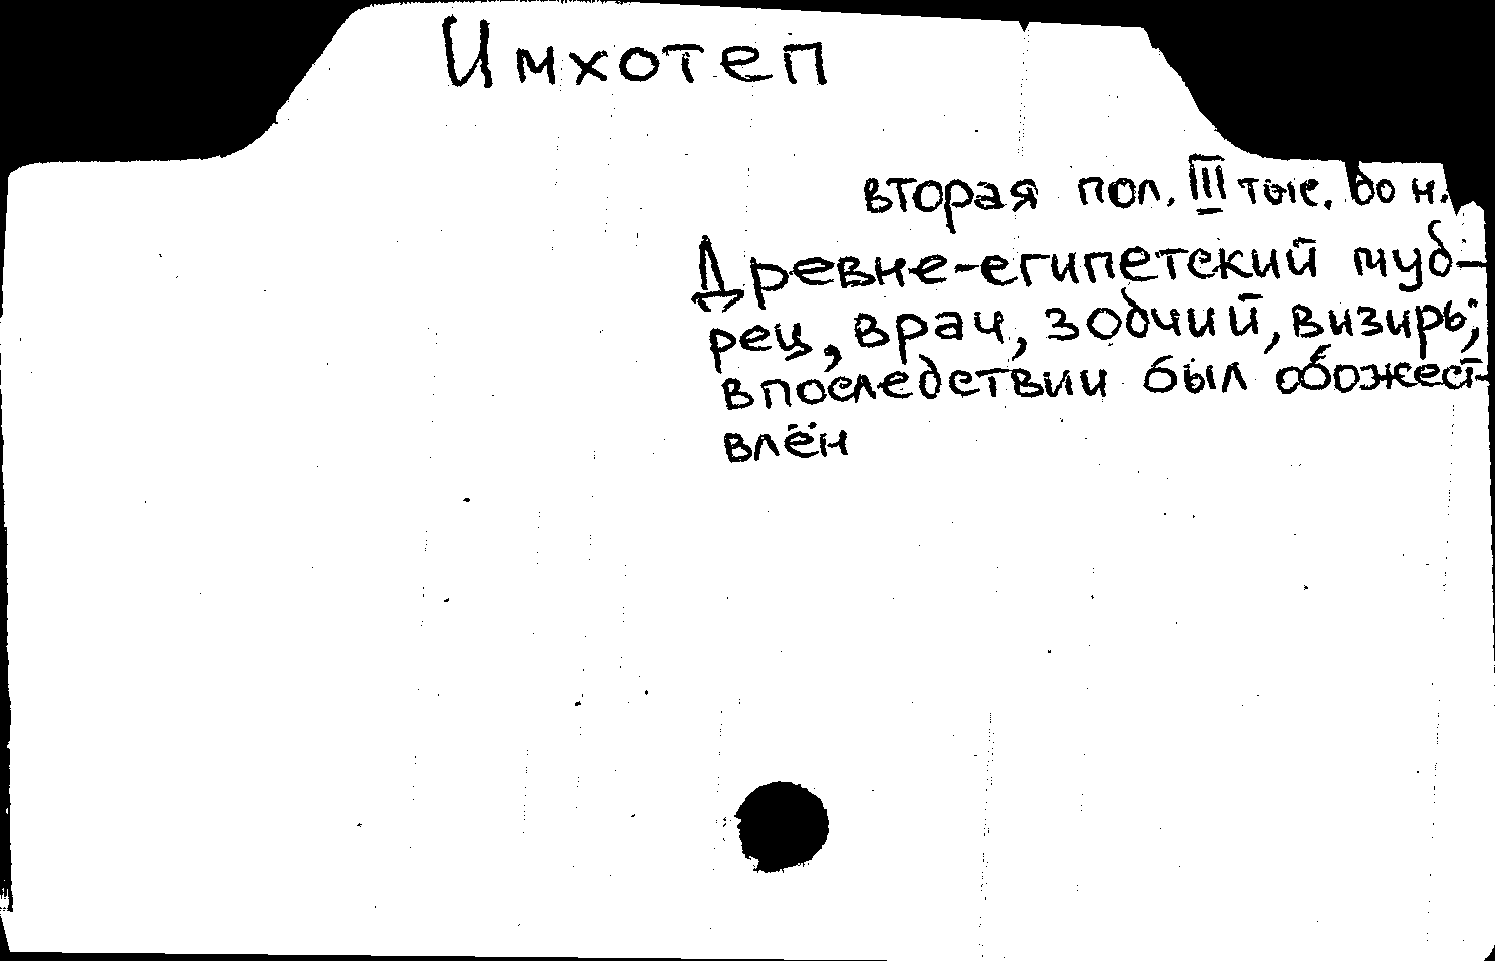 Имхотеп
вторая пол. III тыс. до н.
Древне-египетский муд-
рец, врач, зодчий, визирь;
впоследствии был обожест-
влён